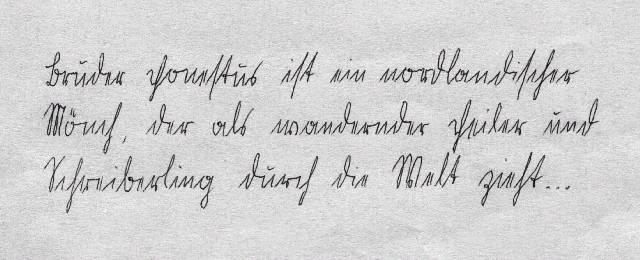 Bruder Honestus ist ein nordlandischer
Mönch, der als wandernder Heiler und
Schreiberling durch die Welt zieht...